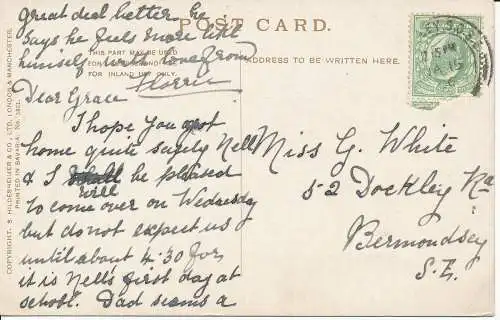 great deal better, he
says he feels more like
himself with love from
Florrie
POST CARD.
THIS PART MAY BE USED
FOR CORRESPONDENCE
FOR INLAND USE ONLY.
ADDRESS TO BE WRITTEN HERE.
Dear Grace
I hope you got
home quite safely Nell
& I shall be pleased
will
to come over on Wednesday
but do not expect us
until about 4.30 for
it is Nell's first day at
school. Dad seems a
Miss G. White
52 Dockley Rd
Bermondsey
S.E.
COPYRIGHT. S. HILDESHEIMER & CO., LTD. LONDON & MANCHESTER.
PRINTED IN BAVARIA. No.